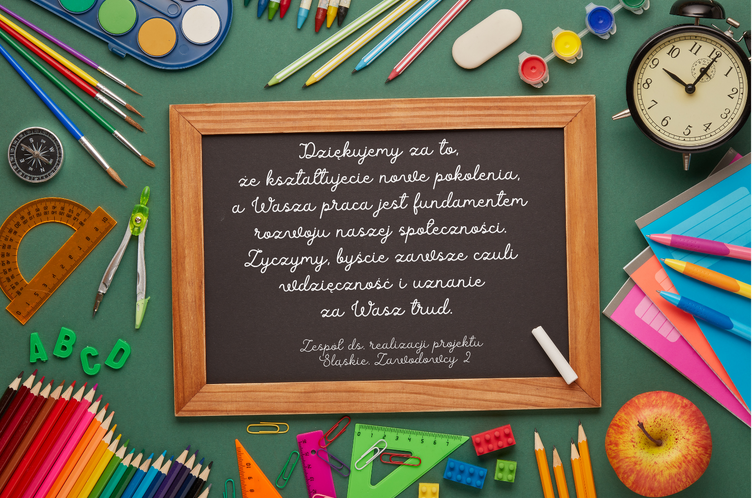 Dziękujemy za to,
że kształtujecie nowe pokolenia,
a Wasza praca jest fundamentem
rozwoju naszej społeczności.
Życzymy, byście zawsze czuli
wdzięczność i uznanie
za Wasz trud.
Zespół ds. realizacji projektu
Śląskie. Zawodowcy 2
A B C D